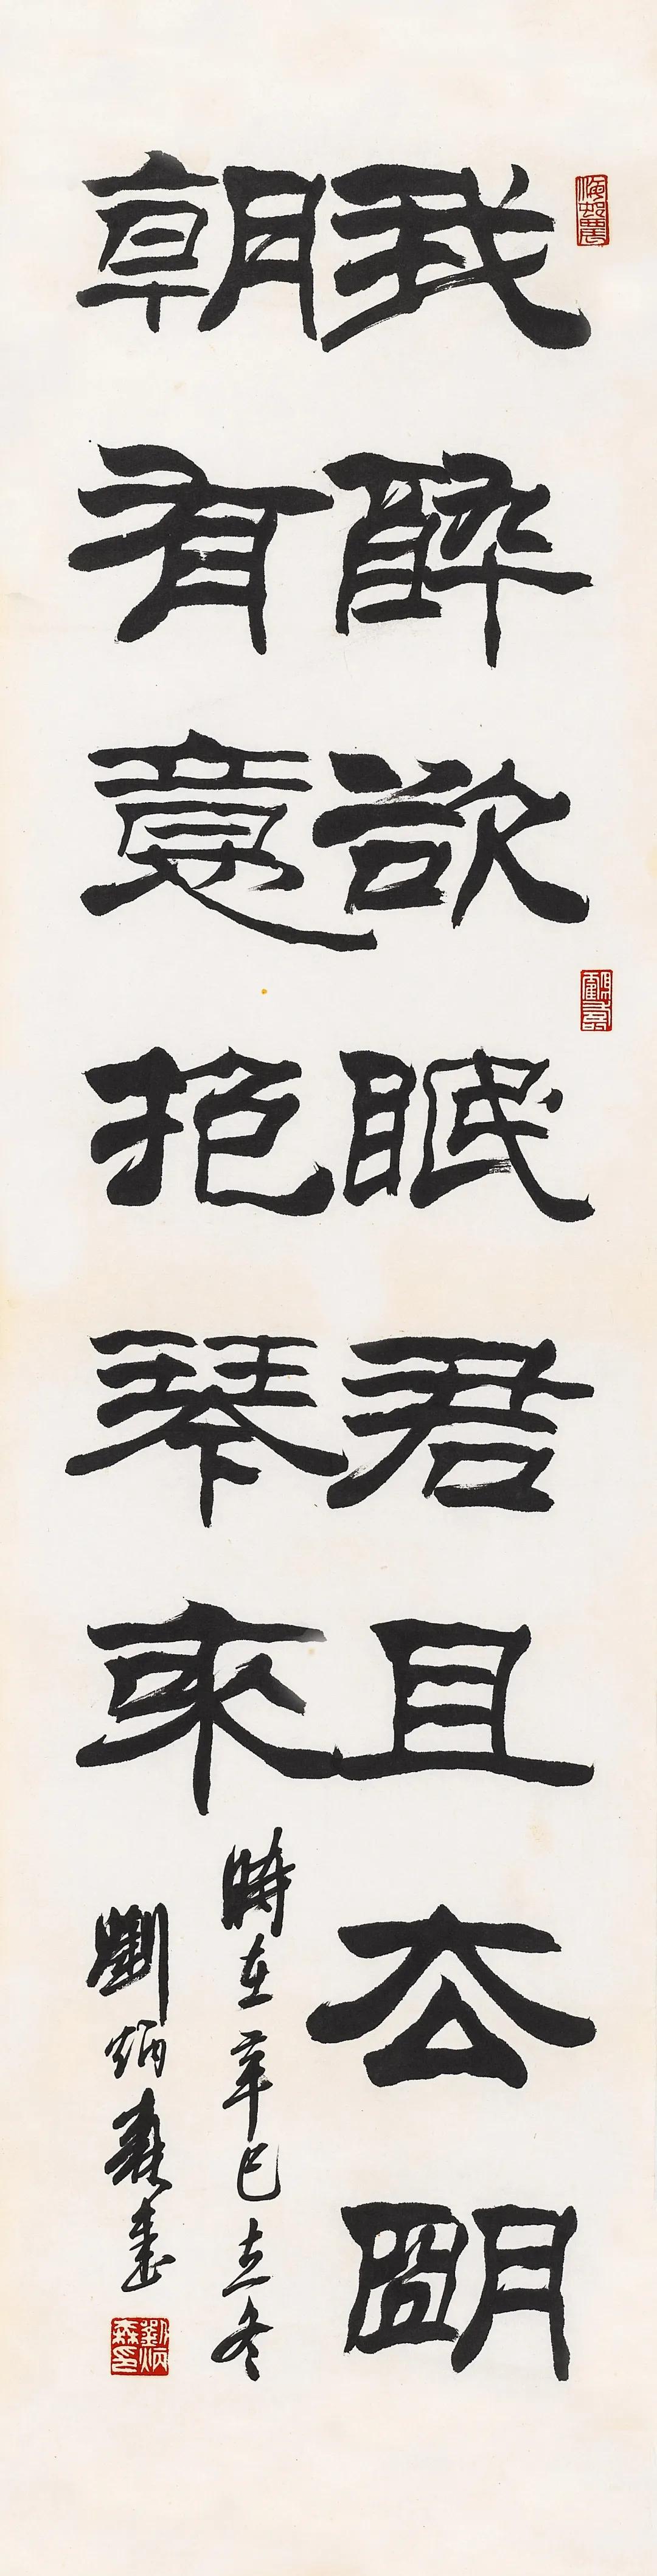 我醉欲眠君且去明
朝有意抱琴来
時在辛巳立冬
劉炳森書
劉炳森印